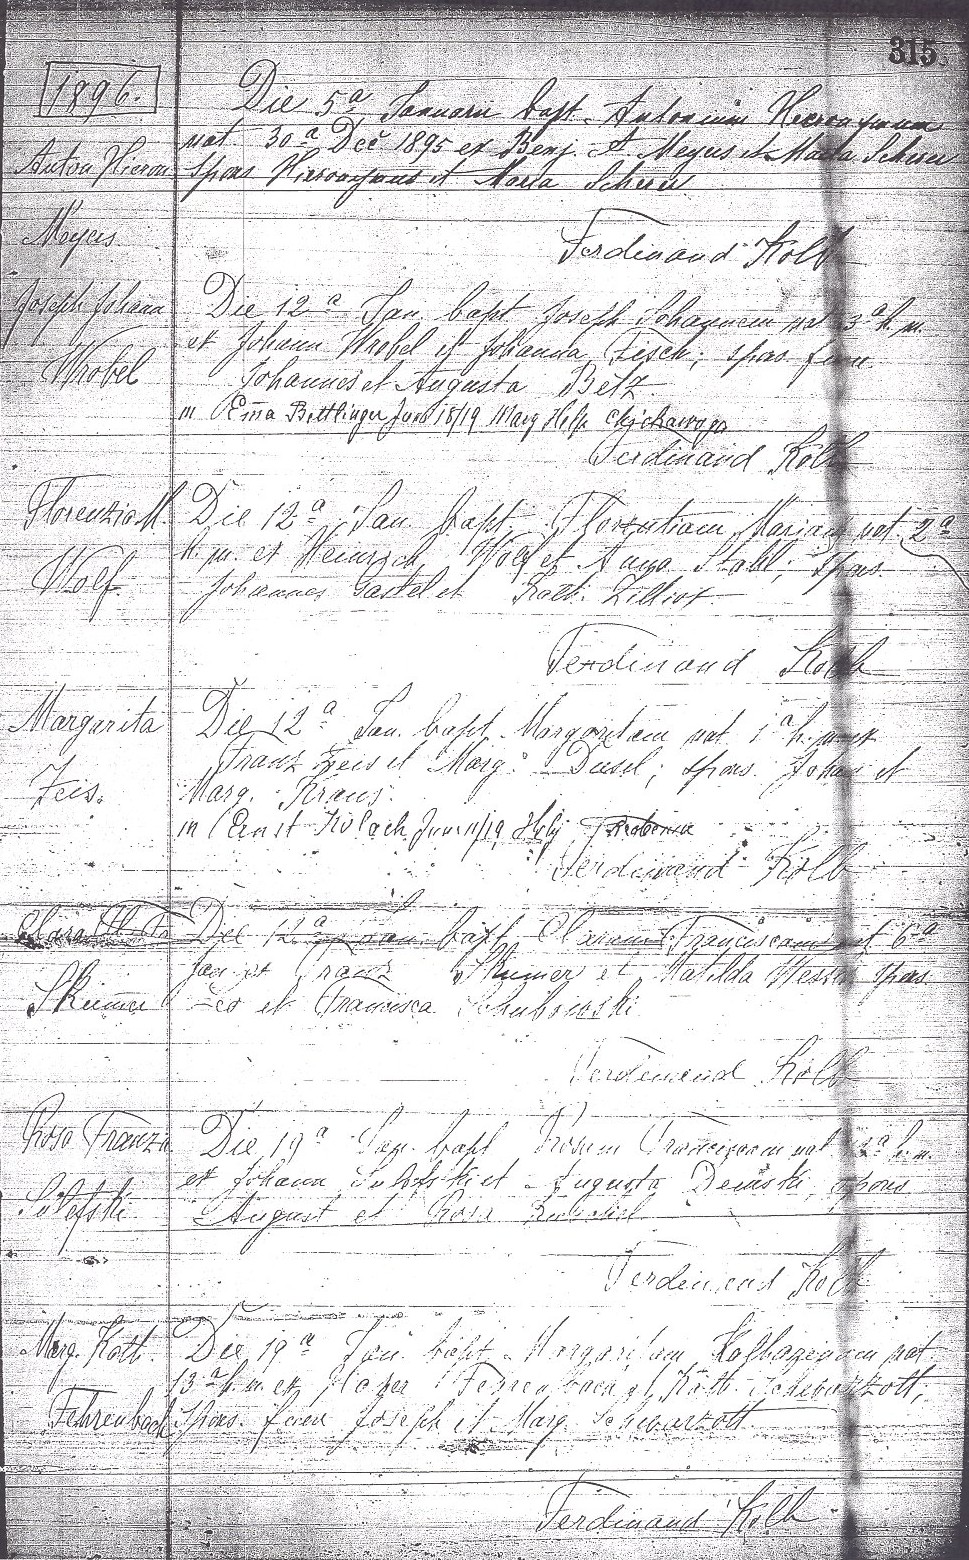 315.
1896.
Die 5ª Januarii bapt Antonium Hieronymum
nat 30ª Dec 1895 ex Benj. A Meyers et Maria Scherer
Anton Hieron
Spons Hieronymus et Maria Scherer
Meyers
Ferdinand Kolb
Joseph Johann
Die 12ª Jan. bapt Joseph Johannem nat 3ª h. m.
ex Johann Wrobel et Johanna Fisch; spons fuere
Wrobel
Johannes et Augusta Betz
m Emma Bettlinger June 18/19 Mary Help
Ferdinand Kolb
Florenzia M.
Die 12ª Jan. bapt. Florentiam Mariam nat. 2ª
h. m. ex Heinrich Wolf et Augo. Stabl; spons.
Wolf.
Johannes Gastel et Kath. Zilliox
Ferdinand Kolb
Margarita
Die 12ª Jan. bapt. Margaritam nat 1ª h. m. ex
Franz Zeis et Marg. Diesel; spons. Johan et
Zeis.
Marg. Kraus.
m Ernst Kolach June 11/19, Holy
Ferdinand Kolb
Die 12ª Jan. bapt Claram Franciscam nat 6ª
Jan ex Franz Skumer et Matilda Wessel spons.
Skumer
Leo et Francisca Schubowski
Ferdinand Kolb
Rosa Franzis.
Die 19ª Jan. bapt Rosam Franciscam nat h. m.
ex Johann et Augusta Demski spons
August et Rosa
Ferdinand Kolb
Marg. Kath.
Die 19ª Jan. bapt. Margaritam Katharinam nat
13ª h. m. ex Fehrenbach et Kath. Schwarzott;
Fehrenbach
spons. fuere Joseph et Marg. Schwarzott
Ferdinand Kolb